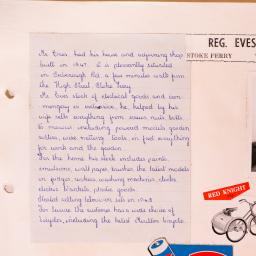 Mr. Eves had his house and adjoining shop
built in 1947. It is pleasantly situated
in Wretton Rd, a few minutes walk from
the High Street, Stoke Ferry.
Mr. Eves stock of electrical goods and iron-
mongery is extensive, he, helped by his
wife sells everything from screws, nuts, bolts,
to mowers, including powered models, garden
rollers, wire netting, tools, in fact everything
for work and the garden.
For the home his stock includes paints,
emulsions, wall paper, brushes, the latest models
in fridges, cookers, washing machines, clocks,
electric blankets, plastic goods.
Started selling television sets in 1948
For leisure the customer has a wide choice of
bicycles, including the latest Moulton bicycle.
REG. EVES
STOKE FERRY
RED KNIGHT